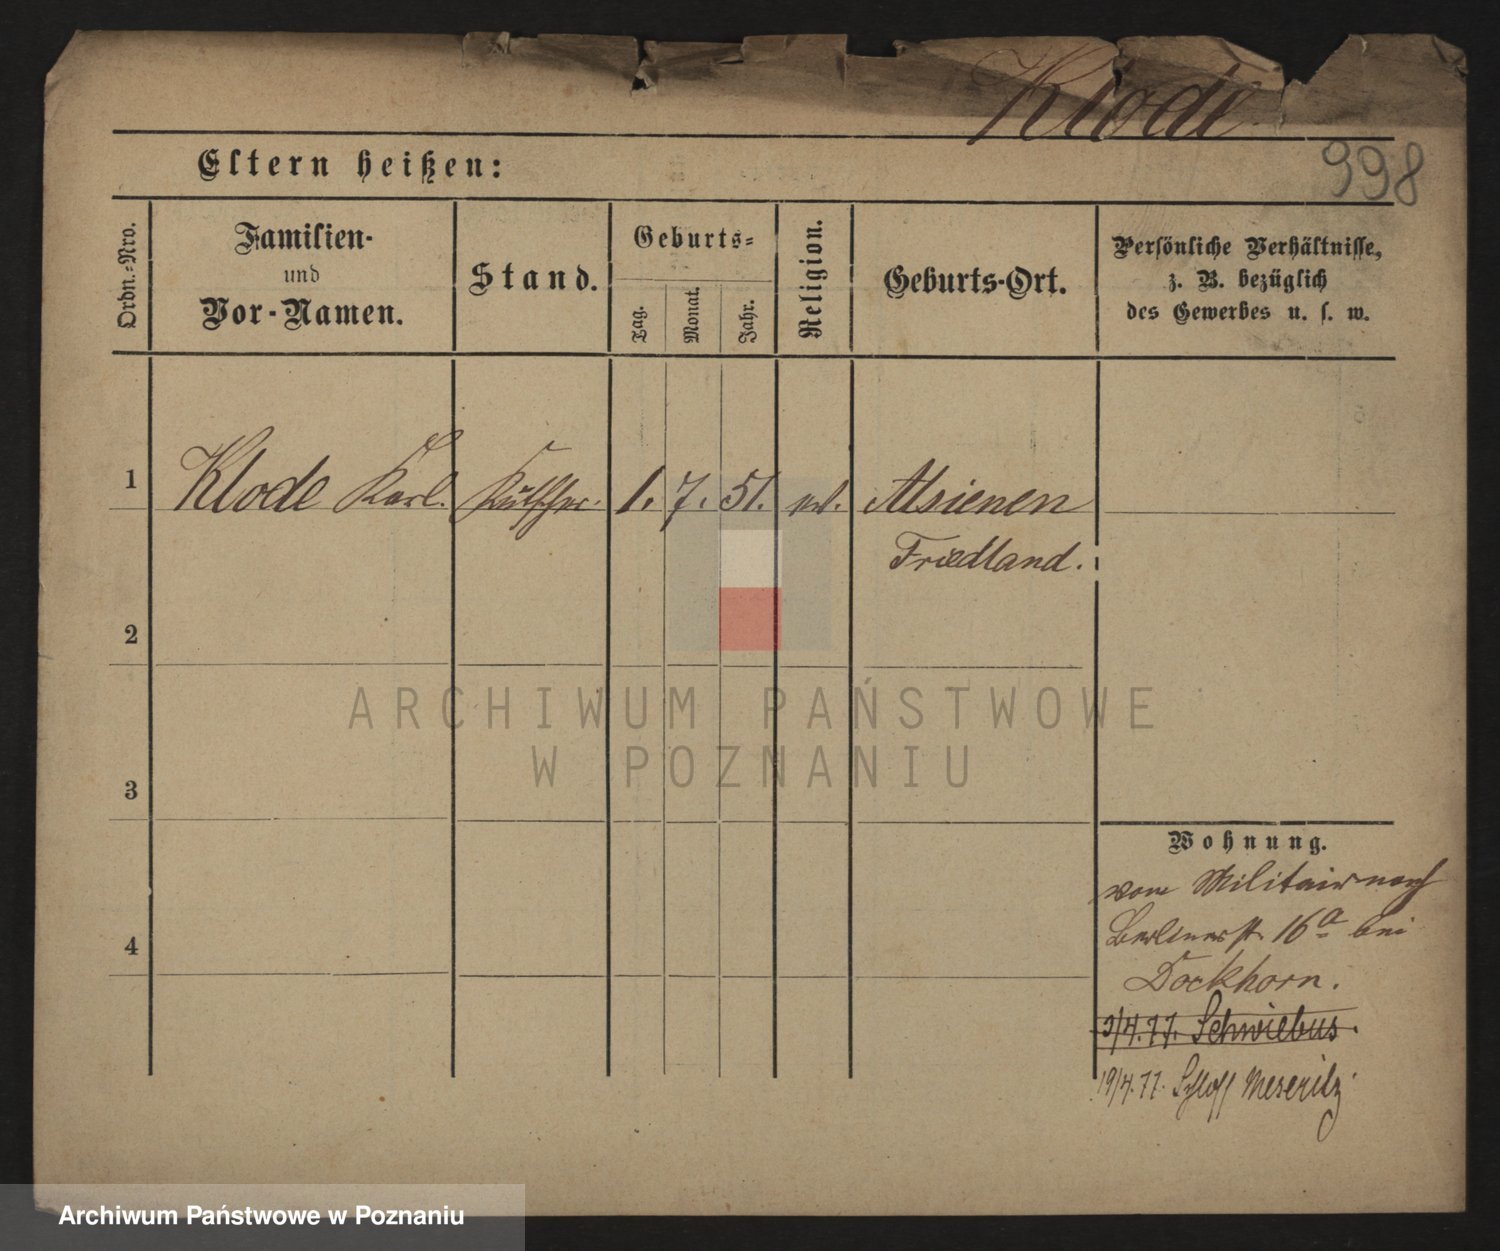 Klode
998
Eltern heißen:
Ordn.-Nro.
Familien-
und
Vor-Namen.
Stand.
Geburts-
Tag.
Monat.
Jahr.
Religion.
Geburts-Ort.
Persönliche Verhältnisse,
z. B. bezüglich
des Gewerbes u. s. w.
1 Klode Karl. Kutscher. 1. 7. 51. ev. Alsienen
Friedland.
2
3
4
Wohnung.
vom Militair nach
Berlinerst. 16a bei
Dockhorn.
3/4.77. Schwiebus.
19/4.77. Schloss Meseritz.
ARCHIWUM PAŃSTWOWE
W POZNANIU
Archiwum Państwowe w Poznaniu